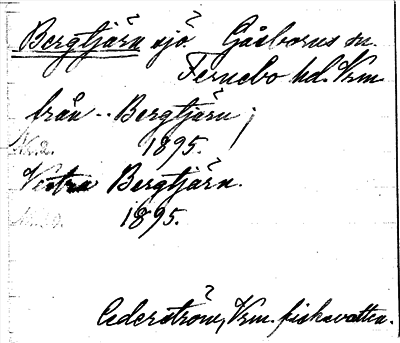 Bergtjärn sjö. Gåsborns sn.
Fernebo hd. Vrm.
från .. Bergtjärn;
No 2. 1895.
Vestra Bergtjärn.
1895.
Cederström, Vrm. fiskevatten.